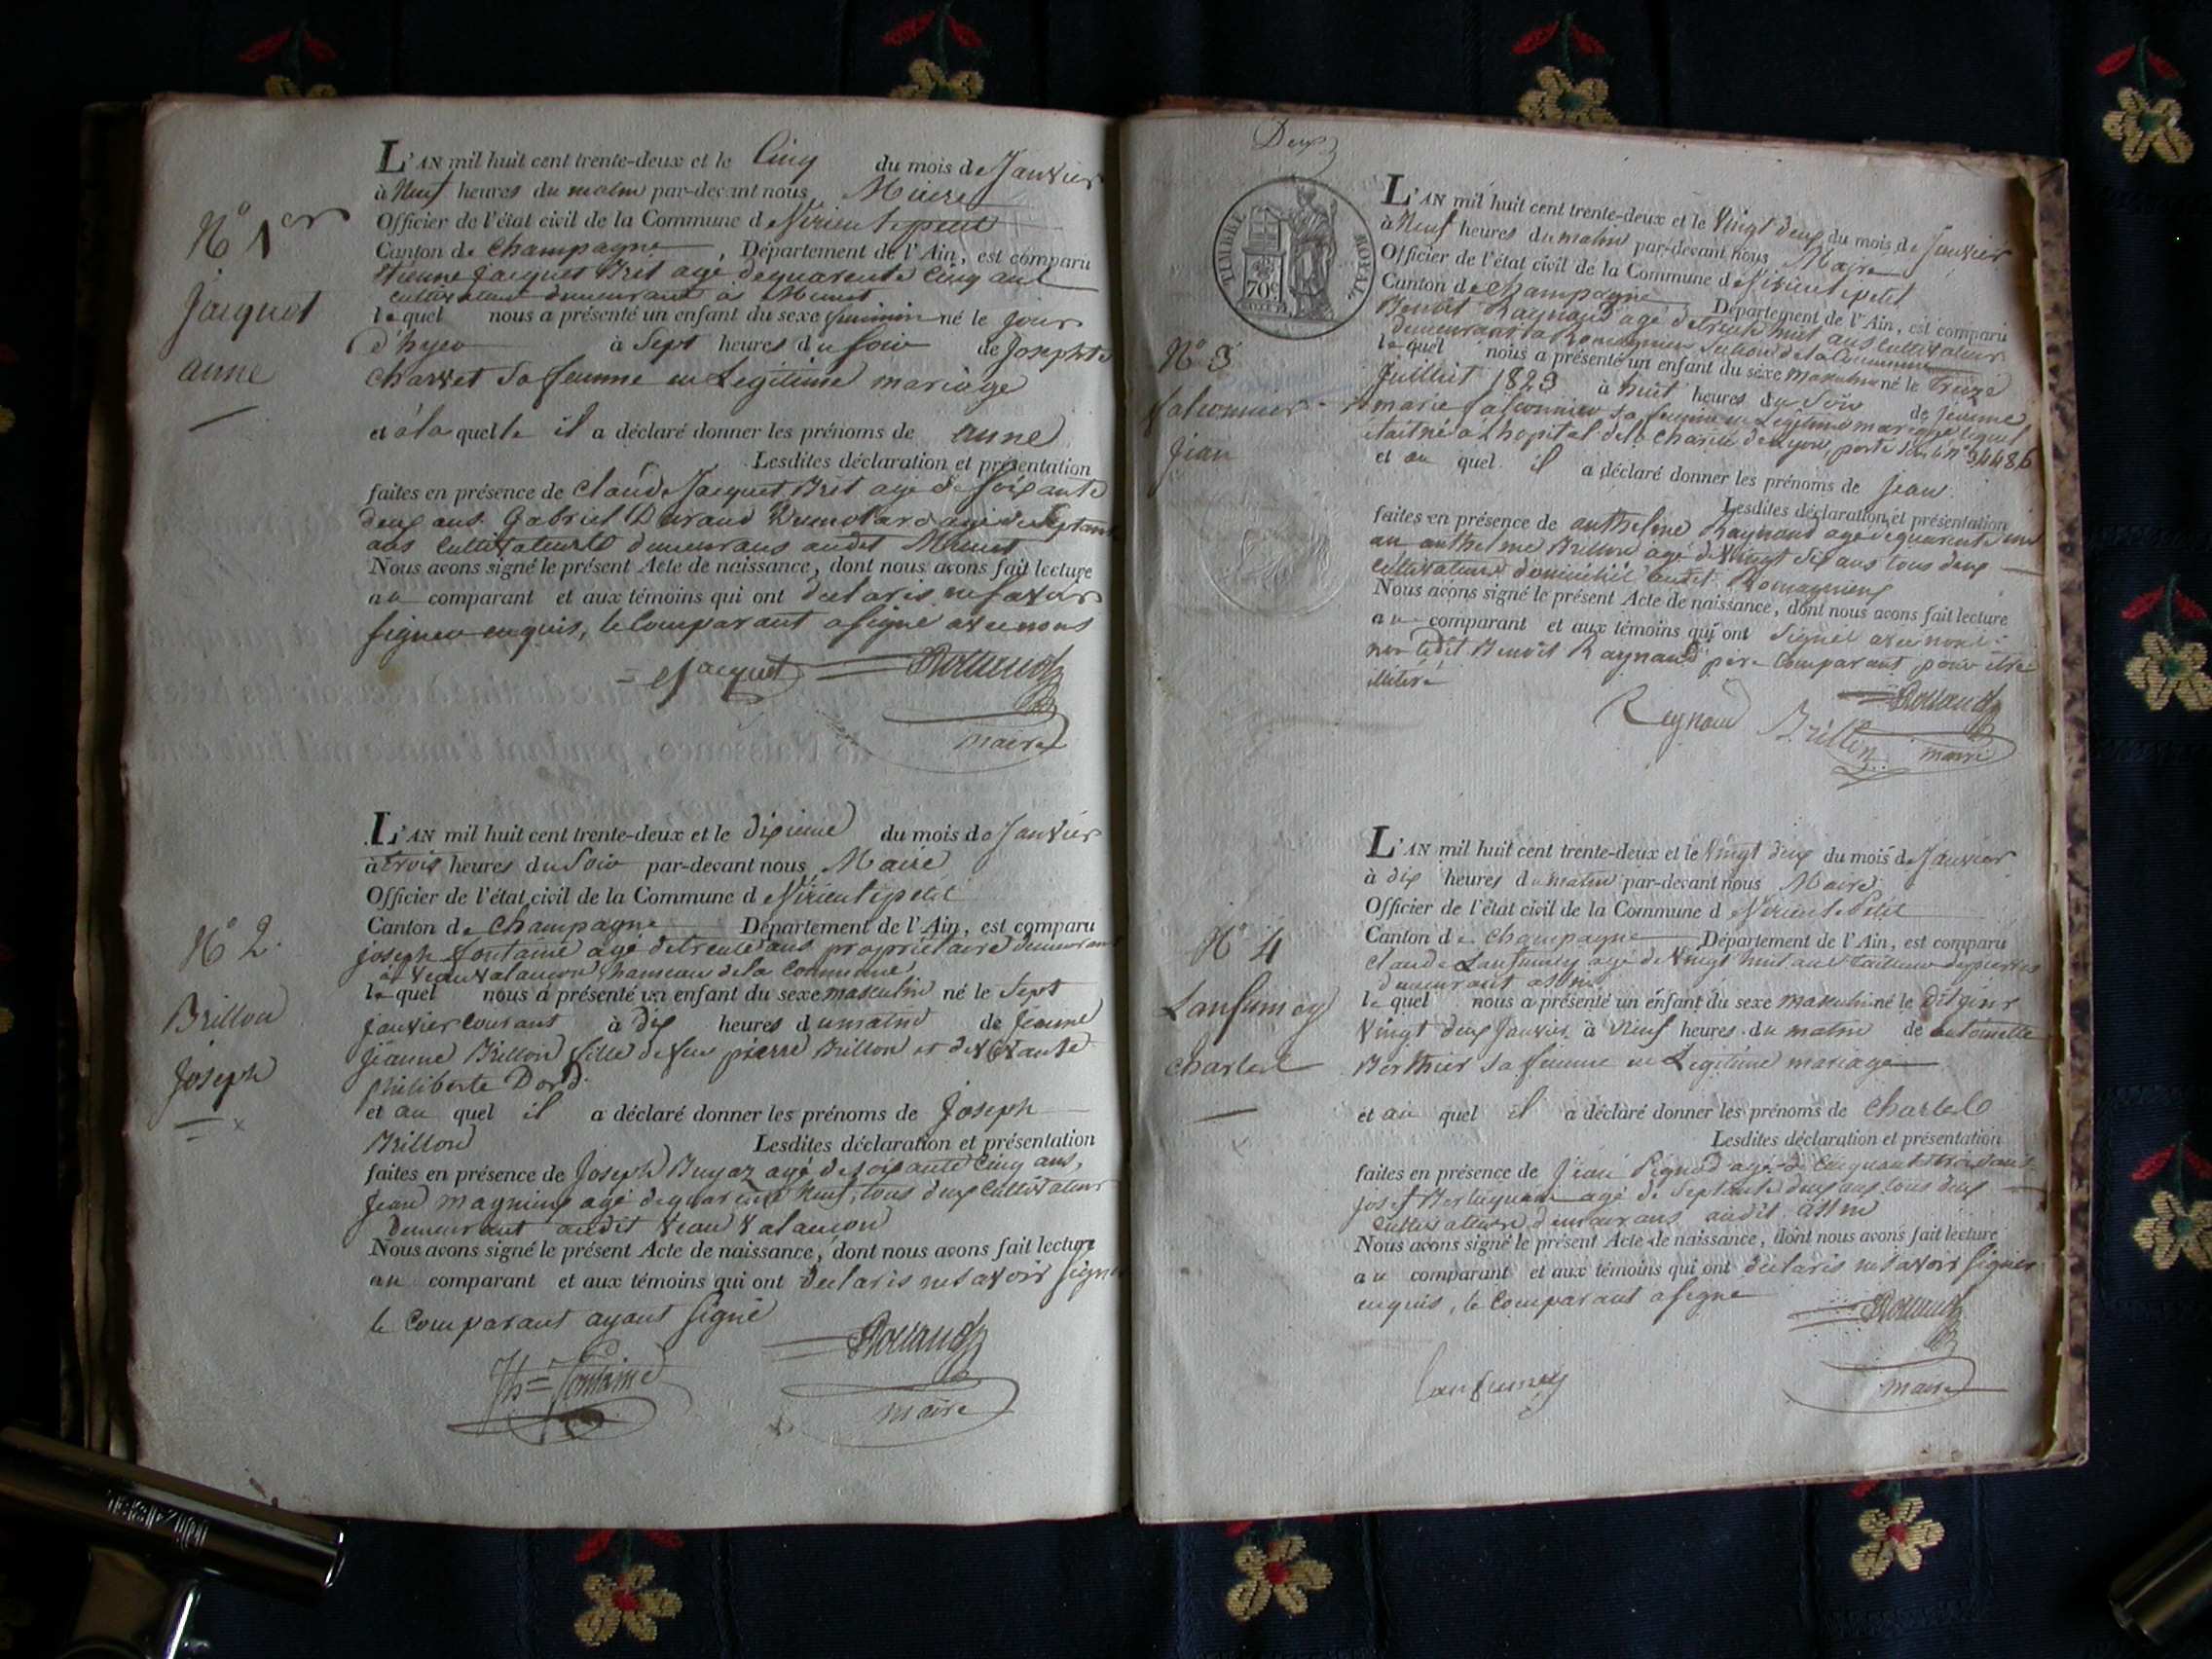 L'AN mil huit cent trente-deux et le Cinq du mois de Janvier
à Neuf heures du matin par-devant nous Maire
Officier de l'état civil de la Commune d Virieu le petit
Canton de Champagne, Département de l'Ain, est comparu
Etienne Jacquet Bret agé de quarente Cinq ans
cultivateur demeurant à Munet
lequel nous a présenté un enfant du sexe feminin né le jour
d'hyer à Sept heures du soir de Josephte
Charvet sa femme en Legitime mariage
et à la quelle il a déclaré donner les prénoms de anne
Lesdites déclaration et présentation
faites en présence de Claude Jacquet Bret agé de soixante
deux ans Gabriel Durand Dumolard agé de septante
ans Cultivateurs demeurans audit Munet
Nous avons signé le présent Acte de naissance, dont nous avons fait lecture
au comparant et aux témoins qui ont declaris ne savoir
signer enquis, le Comparant a signé avec nous
Jacquet
maire
N° 1er
Jacquet
anne
L'AN mil huit cent trente-deux et le dixieme du mois de Janvier
à trois heures du Soir par-devant nous Maire
Officier de l'état civil de la Commune d Virieu le petit
Canton de Champagne Département de l'Ain, est comparu
joseph fontaine agé de trente ans propriétaire demeurant
à Veauvalancon hameau de la Commune
lequel nous a présenté un enfant du sexe masculin né le Sept
janvier Courant à dix heures du matin de Jeanne
jeanne Brillon fille de feu pierre Brillon et de Vivante
Philiberte Dord
et au quel il a déclaré donner les prénoms de Joseph
Brillon Lesdites déclaration et présentation
faites en présence de Joseph Buyaz agé de soixante Cinq ans,
Jean magnin agé de quarente Neuf, tous deux Cultivateur
Demeurant audit Veauvalancon
Nous avons signé le présent Acte de naissance, dont nous avons fait lecture
au comparant et aux témoins qui ont declaris ne savoir signer
le Comparant ayant signé
Jh fontaine
maire
N° 2
Brillon
Joseph
Deux
TIMBRE ROYAL
70c
L'AN mil huit cent trente-deux et le Vingt deux du mois de Janvier
à Neuf heures du matin par-devant nous Maire
Officier de l'état civil de la Commune d Virieu le petit
Canton de Champagne Département de l'Ain, est comparu
Benoit Raynaud agé de trente huit ans Cultivateur
demeurant à Romagnieu section de la Commune
lequel nous a présenté un enfant du sexe Masculin né le Treize
Juillet 1829 à huit heures du Soir de jeanne
marie falconnier sa femme en Légitime mariage lequel
était né à L'hopital de la Charité de Lyon, porté sous le n° 94486
et au quel il a déclaré donner les prénoms de jean
Lesdites déclaration et présentation
faites en présence de anthelme Raynaud agé de quarente un
an anthelme Brillon agé de Vingt Six ans tous deux
Cultivateurs domicilié audit Romagnieu
Nous avons signé le présent Acte de naissance, dont nous avons fait lecture
au comparant et aux témoins qui ont signés avec nous
non ledit Benoit Raynaud père Comparant pour être
illitéré
Reynaud Brillon
maire
N° 3
falconnier
jean
L'AN mil huit cent trente-deux et le Vingt deux du mois de Janvier
à dix heures du matin par-devant nous Maire
Officier de l'état civil de la Commune d Virieu le Petit
Canton de Champagne Département de l'Ain, est comparu
Claude Lanfumey agé de Vingt huit ans Tailleur de pierres
demeurant assin
lequel nous a présenté un enfant du sexe Masculin né le
Vingt deux Janvier à Neuf heures du matin de antoinette
Berthier sa femme en Legitime mariage
et au quel il a déclaré donner les prénoms de Charles
Lesdites déclaration et présentation
faites en présence de Jean agé de Cinquant trois ans
agé de Septante deux ans tous deux
Cultivateurs demeurans audit assin
Nous avons signé le présent Acte de naissance, dont nous avons fait lecture
au comparant et aux témoins qui ont declaris ne savoir signer
enquis, le Comparant a signé
Lanfumey
maire
N° 4
Lanfumey
Charles